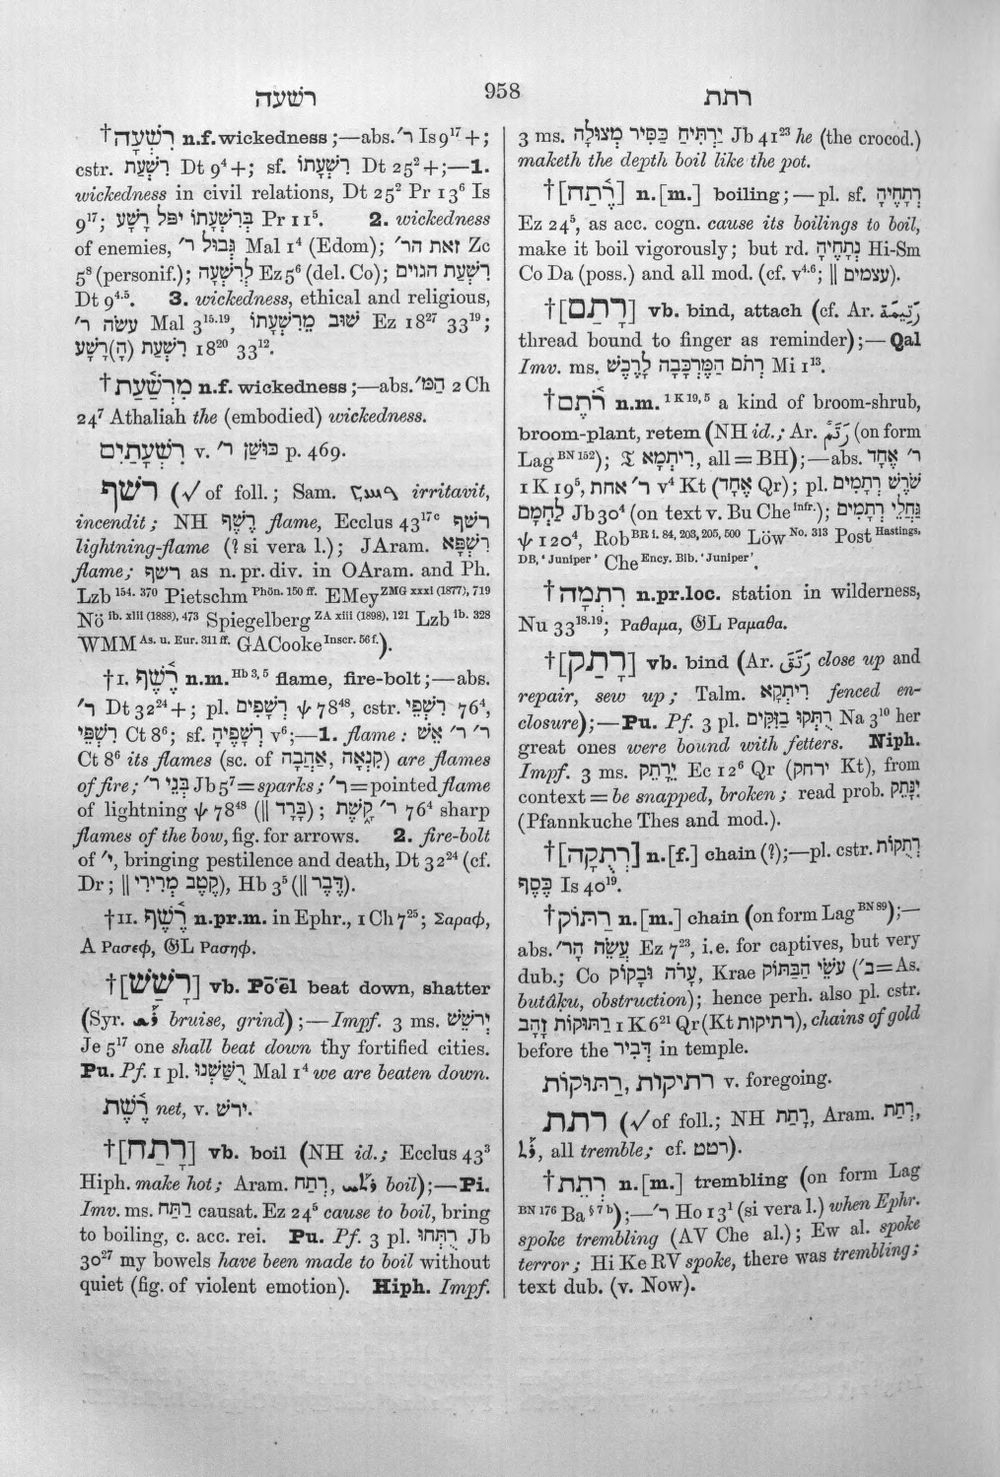 רשׁעה
958
רתת
†רִשְׁעָה n.f. wickedness;—abs. ר׳ Is 9¹⁷ +;
cstr. רִשְׁעַת Dt 9⁴ +; sf. רִשְׁעָתוֹ Dt 25² +;—1.
wickedness in civil relations, Dt 25² Pr 13⁶ Is
9¹⁷; בְּרִשְׁעָתוֹ יִפֹּל רָשָׁע Pr 11⁵. 2. wickedness
of enemies, גְּבוּל ר׳ Mal 1⁴ (Edom); זאת הר׳ Zc
5⁸ (personif.); לְרִשְׁעָה Ez 5⁶ (del. Co); רִשְׁעַת הגוים
Dt 9⁴·⁵. 3. wickedness, ethical and religious,
עשׂה ר׳ Mal 3¹⁵·¹⁹, שׁוּב מֵרִשְׁעָתוֹ Ez 18²⁷ 33¹⁹;
רִשְׁעַת (הָ)רָשָׁע 18²⁰ 33¹².
†מִרְשַׁ֫עַת n.f. wickedness;—abs. הַמּ׳ 2 Ch
24⁷ Athaliah the (embodied) wickedness.
רִשְׁעָתַיִם v. כּוּשַׁן ר׳ p. 469.
רשׁף (√ of foll.; Sam. irritavit,
incendit; NH רֶשֶׁף flame, Ecclus 43¹⁷ᶜ רשׁף
lightning-flame (? si vera l.); JAram. רִשְׁפָּא
flame; רשף as n. pr. div. in OAram. and Ph.
Lzb 154. 370 Pietschm Phön. 150 ff. EMey ZMG xxxi (1877), 719
Nö ib. xlii (1888), 473 Spiegelberg ZA xiii (1898), 121 Lzb ib. 328
WMM As. u. Eur. 311 ff. GACooke Inscr. 56 f.).
†I. רֶ֫שֶׁף n.m. Hb 3, 5 flame, fire-bolt;—abs.
ר׳ Dt 32²⁴ +; pl. רְשָׁפִים ψ 78⁴⁸, cstr. רִשְׁפֵי 76⁴,
רִשְׁפֵּי Ct 8⁶; sf. רְשָׁפֶיהָ v⁶;—1. flame: ר׳ ר׳ אֵשׁ
Ct 8⁶ its flames (sc. of קִנְאָה, אַהֲבָה) are flames
of fire; בְּנֵי ר׳ Jb 5⁷=sparks; ר׳=pointed flame
of lightning ψ 78⁴⁸ (‖ בָּרָד); ר׳ קָשֶׁת 76⁴ sharp
flames of the bow, fig. for arrows. 2. fire-bolt
of י׳, bringing pestilence and death, Dt 32²⁴ (cf.
Dr; ‖ קֶטֶב מְרִירִי), Hb 3⁵ (‖ דֶּבֶר).
†II. רֶ֫שֶׁף n.pr.m. in Ephr., 1 Ch 7²⁵; Σαραφ,
A Ρασεφ, 𝔊L Ρασηφ.
†[רָשַׁשׁ] vb. Pōʿēl beat down, shatter
(Syr. bruise, grind);—Impf. 3 ms. יְרֹשֵׁשׁ
Je 5¹⁷ one shall beat down thy fortified cities.
Pu. Pf. 1 pl. רֻשַּׁשְׁנוּ Mal 1⁴ we are beaten down.
רֶ֫שֶׁת net, v. ירשׁ.
†[רָתַח] vb. boil (NH id.; Ecclus 43³
Hiph. make hot; Aram. רְתַח, boil);—Pi.
Imv. ms. רַתַּח causat. Ez 24⁵ cause to boil, bring
to boiling, c. acc. rei. Pu. Pf. 3 pl. רֻתְּחוּ Jb
30²⁷ my bowels have been made to boil without
quiet (fig. of violent emotion). Hiph. Impf.
3 ms. יַרְתִּיחַ כַּסִּיר מְצוּלָה Jb 41²³ he (the crocod.)
maketh the depth boil like the pot.
†[רֶ֫תַח] n.[m.] boiling;—pl. sf. רְתָחֶיהָ
Ez 24⁵, as acc. cogn. cause its boilings to boil,
make it boil vigorously; but rd. נְתָחֶיהָ Hi-Sm
Co Da (poss.) and all mod. (cf. v⁴·⁶; ‖ עצמים).
†[רָתַם] vb. bind, attach (cf. Ar. رَتِيمَة
thread bound to finger as reminder);—Qal
Imv. ms. רְתֹם הַמֶּרְכָּבָה לָרֶכֶשׁ Mi 1¹³.
†רֹ֫תֶם n.m. 1 K 19, 5 a kind of broom-shrub,
broom-plant, retem (NH id.; Ar. رَتَم (on form
Lag BN 152); 𝔗 רִיתְמָא, all=BH);—abs. ר׳ אֶחָד
1 K 19⁵, ר׳ אחת v⁴ Kt (אֶחָד Qr); pl. שֹׁרֶשׁ רְתָמִים
לַחְמָם Jb 30⁴ (on text v. Bu Che infr.); גַּחֲלֵי רְתָמִים
ψ 120⁴, Rob BR i. 84, 203, 205, 500 Löw No. 313 Post Hastings,
DB, ‘Juniper’ Che Ency. Bib. ‘Juniper’.
†רִתְמָה n.pr.loc. station in wilderness,
Nu 33¹⁸·¹⁹; Ραθαμα, 𝔊L Ραμαθα.
†[רָתַק] vb. bind (Ar. رَتَقَ close up and
repair, sew up; Talm. רִיתְקָא fenced en-
closure);—Pu. Pf. 3 pl. רֻתְּקוּ בַזִּקִּים Na 3¹⁰ her
great ones were bound with fetters. Niph.
Impf. 3 ms. יֵרָתֵק Ec 12⁶ Qr (ירחק Kt), from
context=be snapped, broken; read prob. יִנָּתֵק
(Pfannkuche Thes and mod.).
†[רְתֻקָה] n.[f.] chain (?);—pl. cstr. רְתֻקוֹת
כֶּסֶף Is 40¹⁹.
†רַתּוֹק n.[m.] chain (on form Lag BN 89);—
abs. עֲשֵׂה הָר׳ Ez 7²³, i.e. for captives, but very
dub.; Co עָרֹה וּבָקוֹק, Krae עֹשֵׂי הַבַּתּוֹק (ב׳=As.
butûḳu, obstruction); hence perh. also pl. cstr.
רַתּוּקוֹת זָהָב 1 K 6²¹ Qr (Kt רתיקות), chains of gold
before the דְּבִיר in temple.
רתיקות, רַתּוּקוֹת v. foregoing.
רתת (√ of foll.; NH רָתַת, Aram. רְתַת,
all tremble; cf. רטט).
†רְתֵת n.[m.] trembling (on form Lag
BN 176 Ba § 7 b);—ר׳ Ho 13¹ (si vera l.) when Ephr.
spoke trembling (AV Che al.); Ew al. spoke
terror; Hi Ke RV spoke, there was trembling;
text dub. (v. Now).